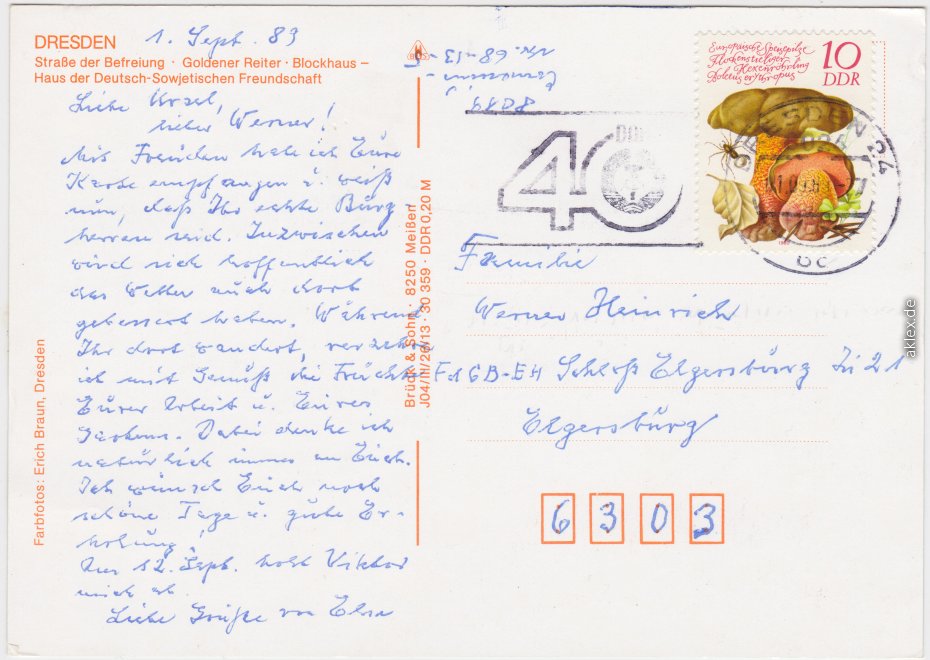 DRESDEN
Straße der Befreiung · Goldener Reiter · Blockhaus –
Haus der Deutsch-Sowjetischen Freundschaft
1. Sept. 83
Liebe Ursel,
lieber Werner!
Mit Freuden habe ich Eure
Karte empfangen u. weiß
nun, daß Ihr echte Burg-
herren seid. Inzwischen
wird sich hoffentlich
das Wetter auch dort
gebessert haben. Während
Ihr dort wandert, verzehre
ich mit Genuß die Früchte
Eurer Arbeit u. Eures
Gartens. Dabei denke ich
natürlich immer an Euch.
Ich wünsch Euch noch
schöne Tage u. gute Er-
holung!
Am 12. Sept. holt Viktor
mich ab.
Liebe Grüße von Elsa
Farbfotos: Erich Braun, Dresden
Brück & Sohn · 8250 Meißen
J04/III/26/13 · 30 359 · DDR 0,20 M
8099
Nr. 68-13
40
DDR
Europäische Speisepilze
Flockenstieliger
Hexenröhrling
Boletus erythropus
10
DDR
DRESDEN 24
Familie
Werner Heinrich
FdGB-EH Schloß Elgersburg Zi 21
Elgersburg
6303
aklex.de